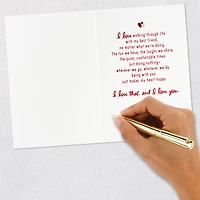 I love walking through life
with my best friend,
no matter what we're doing.
The fun we have, the laughs we share,
the quiet, comfortable times
just doing nothing–
wherever we go, whatever we do
being with you
just makes my heart happy.
I love that, and I love you.